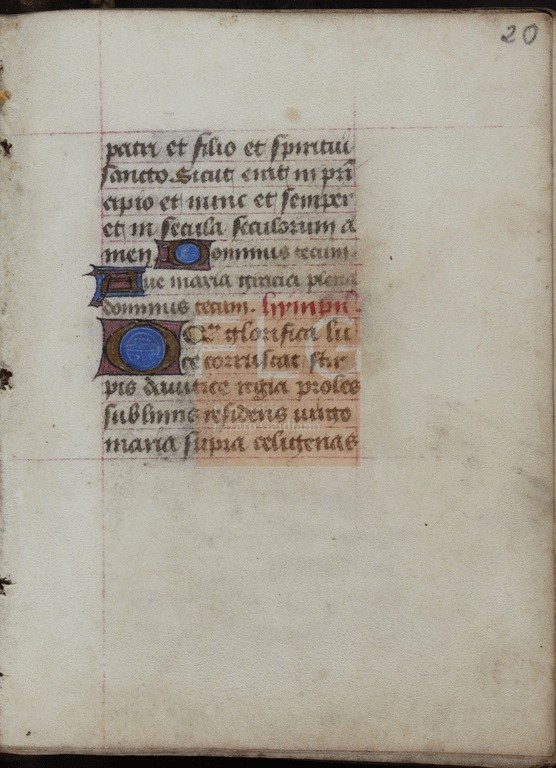 20
patri et filio et spiritui
sancto. Sicut erat in pri
cipio et nunc et semper
et in secula seculorum a
men Dominus tecum
Aue maria gracia plena
dominus tecum. hympn
O qr glorifica lu
ce corruscat stir
pis dauitice regia proles
sublimis residens uirgo
maria supra celigenas